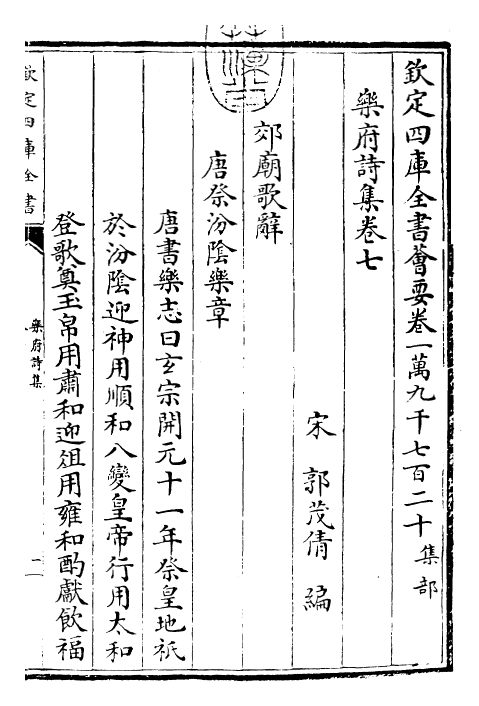 欽定四庫全書薈要卷一萬九千七百二十 集部
樂府詩集卷七
宋 郭茂倩 編
郊廟歌辭
唐祭汾陰樂章
唐書樂志曰玄宗開元十一年祭皇地祇
於汾陰迎神用順和八變皇帝行用太和
登歌奠玉帛用肅和迎俎用雍和酌獻飲福
欽定四庫全書
樂府詩集